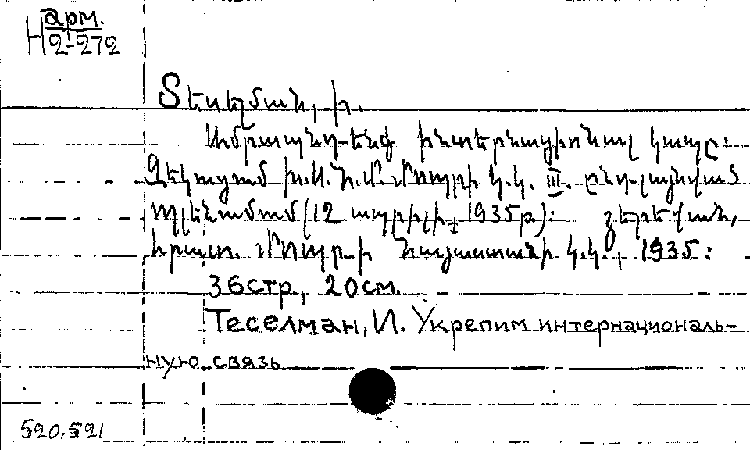 арм.
Н 2-272
Տեսելման, Ի.
Ամրապնդենք ինտերնացիոնալ կապը։
Զեկուցում Ի.Ս.Խ.Մ. Մոպրի Կ.Կ. III. ընդլայնված
պլենումում (12 ապրիլի, 1935թ)։ Յերեվան,
հրատ. Մոպր-ի Հայաստանի Կ.Կ., 1935։
36стр., 20см.
Теселман, И. Укрепим интернациональ-
ную связь
520.521